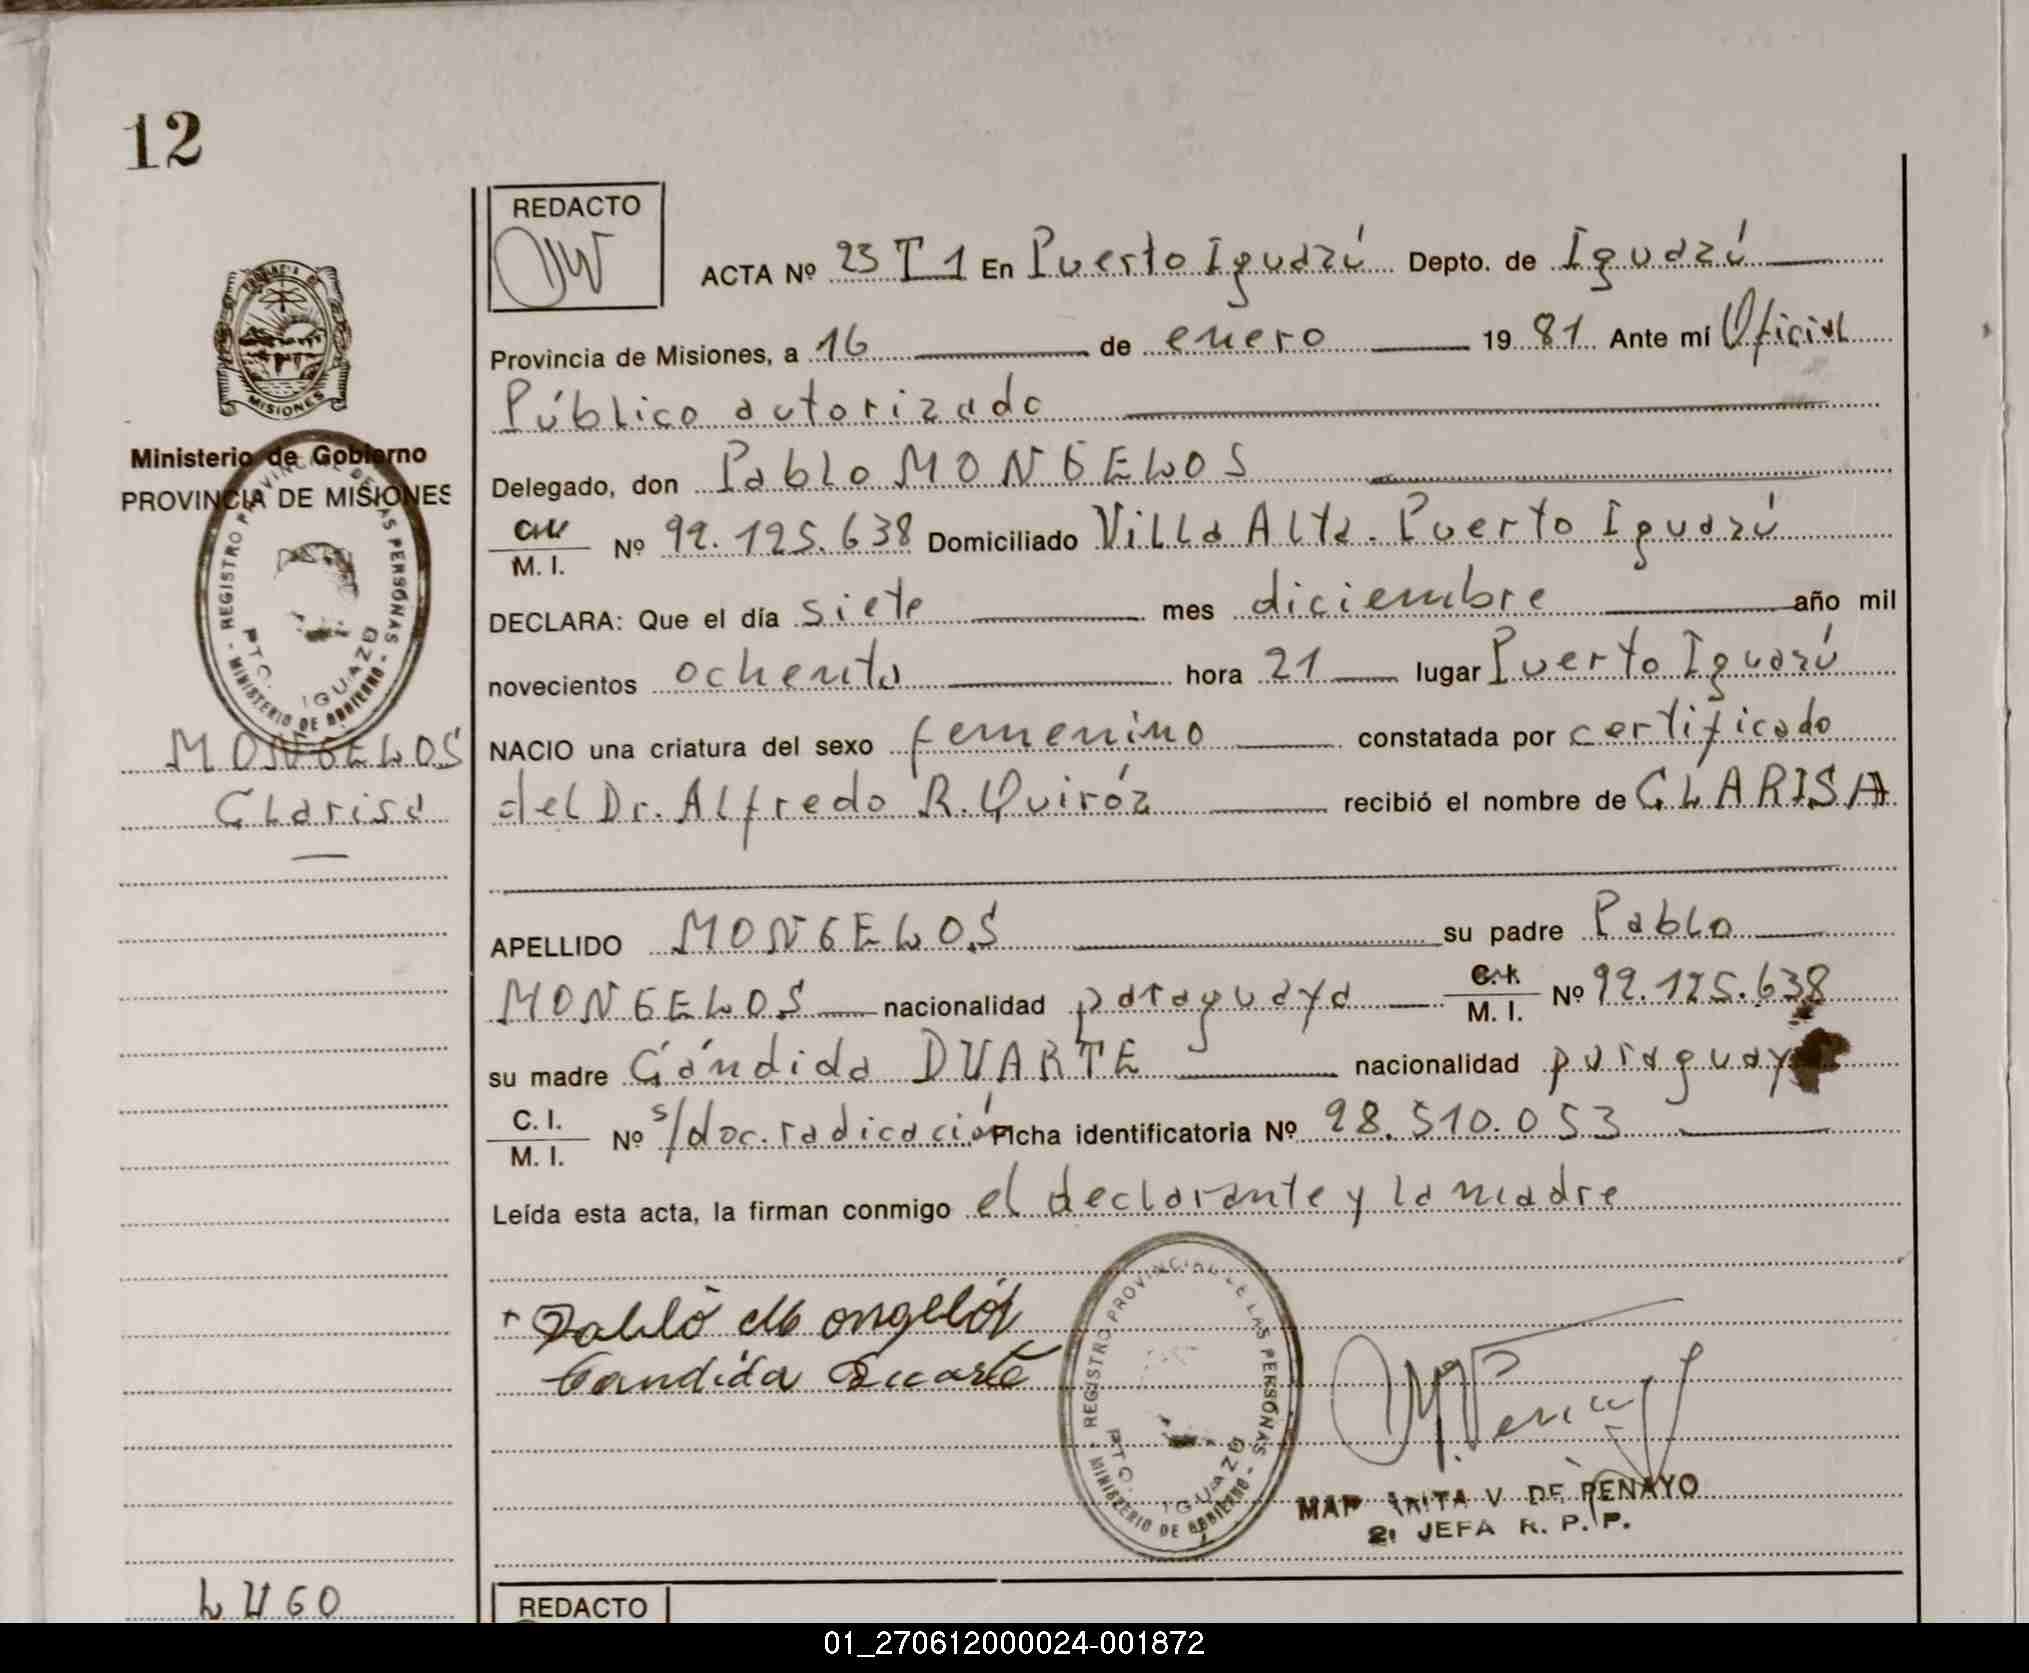 12
REDACTO
ACTA Nº 23 T 1 En Puerto Iguazú Depto. de Iguazú
Provincia de Misiones, a 16 de enero 1981 Ante mí Oficial
Público autorizado
PROVINCIA DE MISIONES
Ministerio de Gobierno
PROVINCIA DE MISIONES
REGISTRO PROVINCIAL DE LAS PERSONAS - MINISTERIO DE GOBIERNO -
PTO. IGUAZU
MONGELOS
Clarisa
Delegado, don Pablo MONGELOS
M. I. Nº 92.125.638 Domiciliado Villa Alta. Puerto Iguazú
DECLARA: Que el día siete mes diciembre año mil
novecientos ochenta hora 21 lugar Puerto Iguazú
NACIO una criatura del sexo femenino constatada por certificado
del Dr. Alfredo R. Quiróz recibió el nombre de CLARISA
APELLIDO MONGELOS su padre Pablo
MONGELOS nacionalidad paraguaya C. I. M. I. Nº 92.125.638
su madre Cándida DUARTE nacionalidad paraguay
C. I. M. I. Nº s/doc. radicación Ficha identificatoria Nº 98.510.053
Leída esta acta, la firman conmigo el declarante y la madre
Pablo Mongelós
Candida Duarte
REGISTRO PROVINCIAL DE LAS PERSONAS - MINISTERIO DE GOBIERNO -
PTO. IGUAZU
V. DE PENAYO
2ª JEFA R. P. P.
LUGO
REDACTO
01_270612000024-001872